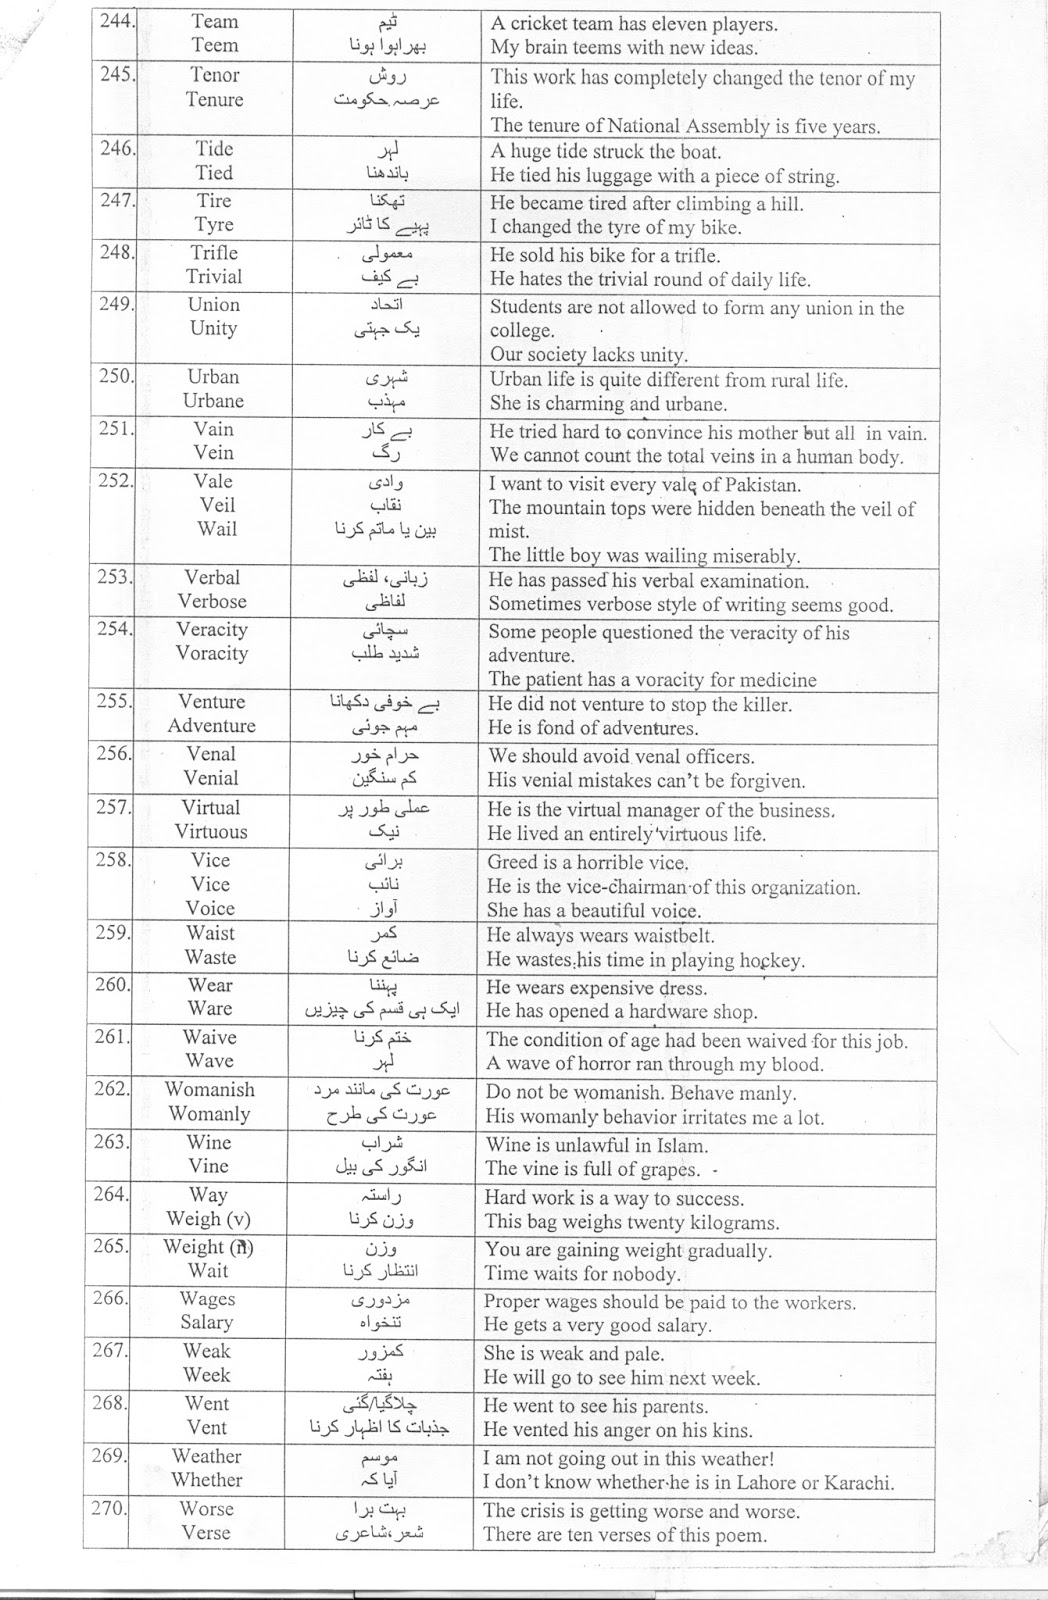 244. Team ٹیم A cricket team has eleven players.
Teem بھراہوا ہونا My brain teems with new ideas.
245. Tenor روش This work has completely changed the tenor of my
Tenure عرصہ حکومت life.
The tenure of National Assembly is five years.
246. Tide لہر A huge tide struck the boat.
Tied باندھنا He tied his luggage with a piece of string.
247. Tire تھکنا He became tired after climbing a hill.
Tyre پہیے کا ٹائر I changed the tyre of my bike.
248. Trifle معمولی He sold his bike for a trifle.
Trivial بے کیف He hates the trivial round of daily life.
249. Union اتحاد Students are not allowed to form any union in the
Unity یک جہتی college.
Our society lacks unity.
250. Urban شہری Urban life is quite different from rural life.
Urbane مہذب She is charming and urbane.
251. Vain بے کار He tried hard to convince his mother but all in vain.
Vein رگ We cannot count the total veins in a human body.
252. Vale وادی I want to visit every vale of Pakistan.
Veil نقاب The mountain tops were hidden beneath the veil of
Wail بین یا ماتم کرنا mist.
The little boy was wailing miserably.
253. Verbal زبانی، لفظی He has passed his verbal examination.
Verbose لفاظی Sometimes verbose style of writing seems good.
254. Veracity سچائی Some people questioned the veracity of his
Voracity شدید طلب adventure.
The patient has a voracity for medicine
255. Venture بے خوفی دکھانا He did not venture to stop the killer.
Adventure مہم جوئی He is fond of adventures.
256. Venal حرام خور We should avoid venal officers.
Venial کم سنگین His venial mistakes can't be forgiven.
257. Virtual عملی طور پر He is the virtual manager of the business.
Virtuous نیک He lived an entirely virtuous life.
258. Vice برائی Greed is a horrible vice.
Vice نائب He is the vice-chairman of this organization.
Voice آواز She has a beautiful voice.
259. Waist کمر He always wears waistbelt.
Waste ضائع کرنا He wastes his time in playing hockey.
260. Wear پہننا He wears expensive dress.
Ware ایک ہی قسم کی چیزیں He has opened a hardware shop.
261. Waive ختم کرنا The condition of age had been waived for this job.
Wave لہر A wave of horror ran through my blood.
262. Womanish عورت کی مانند مرد Do not be womanish. Behave manly.
Womanly عورت کی طرح His womanly behavior irritates me a lot.
263. Wine شراب Wine is unlawful in Islam.
Vine انگور کی بیل The vine is full of grapes.
264. Way راستہ Hard work is a way to success.
Weigh (v) وزن کرنا This bag weighs twenty kilograms.
265. Weight (n) وزن You are gaining weight gradually.
Wait انتظار کرنا Time waits for nobody.
266. Wages مزدوری Proper wages should be paid to the workers.
Salary تنخواہ He gets a very good salary.
267. Weak کمزور She is weak and pale.
Week ہفتہ He will go to see him next week.
268. Went چلاگیا/گئی He went to see his parents.
Vent جذبات کا اظہار کرنا He vented his anger on his kins.
269. Weather موسم I am not going out in this weather!
Whether آیا کہ I don't know whether he is in Lahore or Karachi.
270. Worse بہت برا The crisis is getting worse and worse.
Verse شعر،شاعری There are ten verses of this poem.